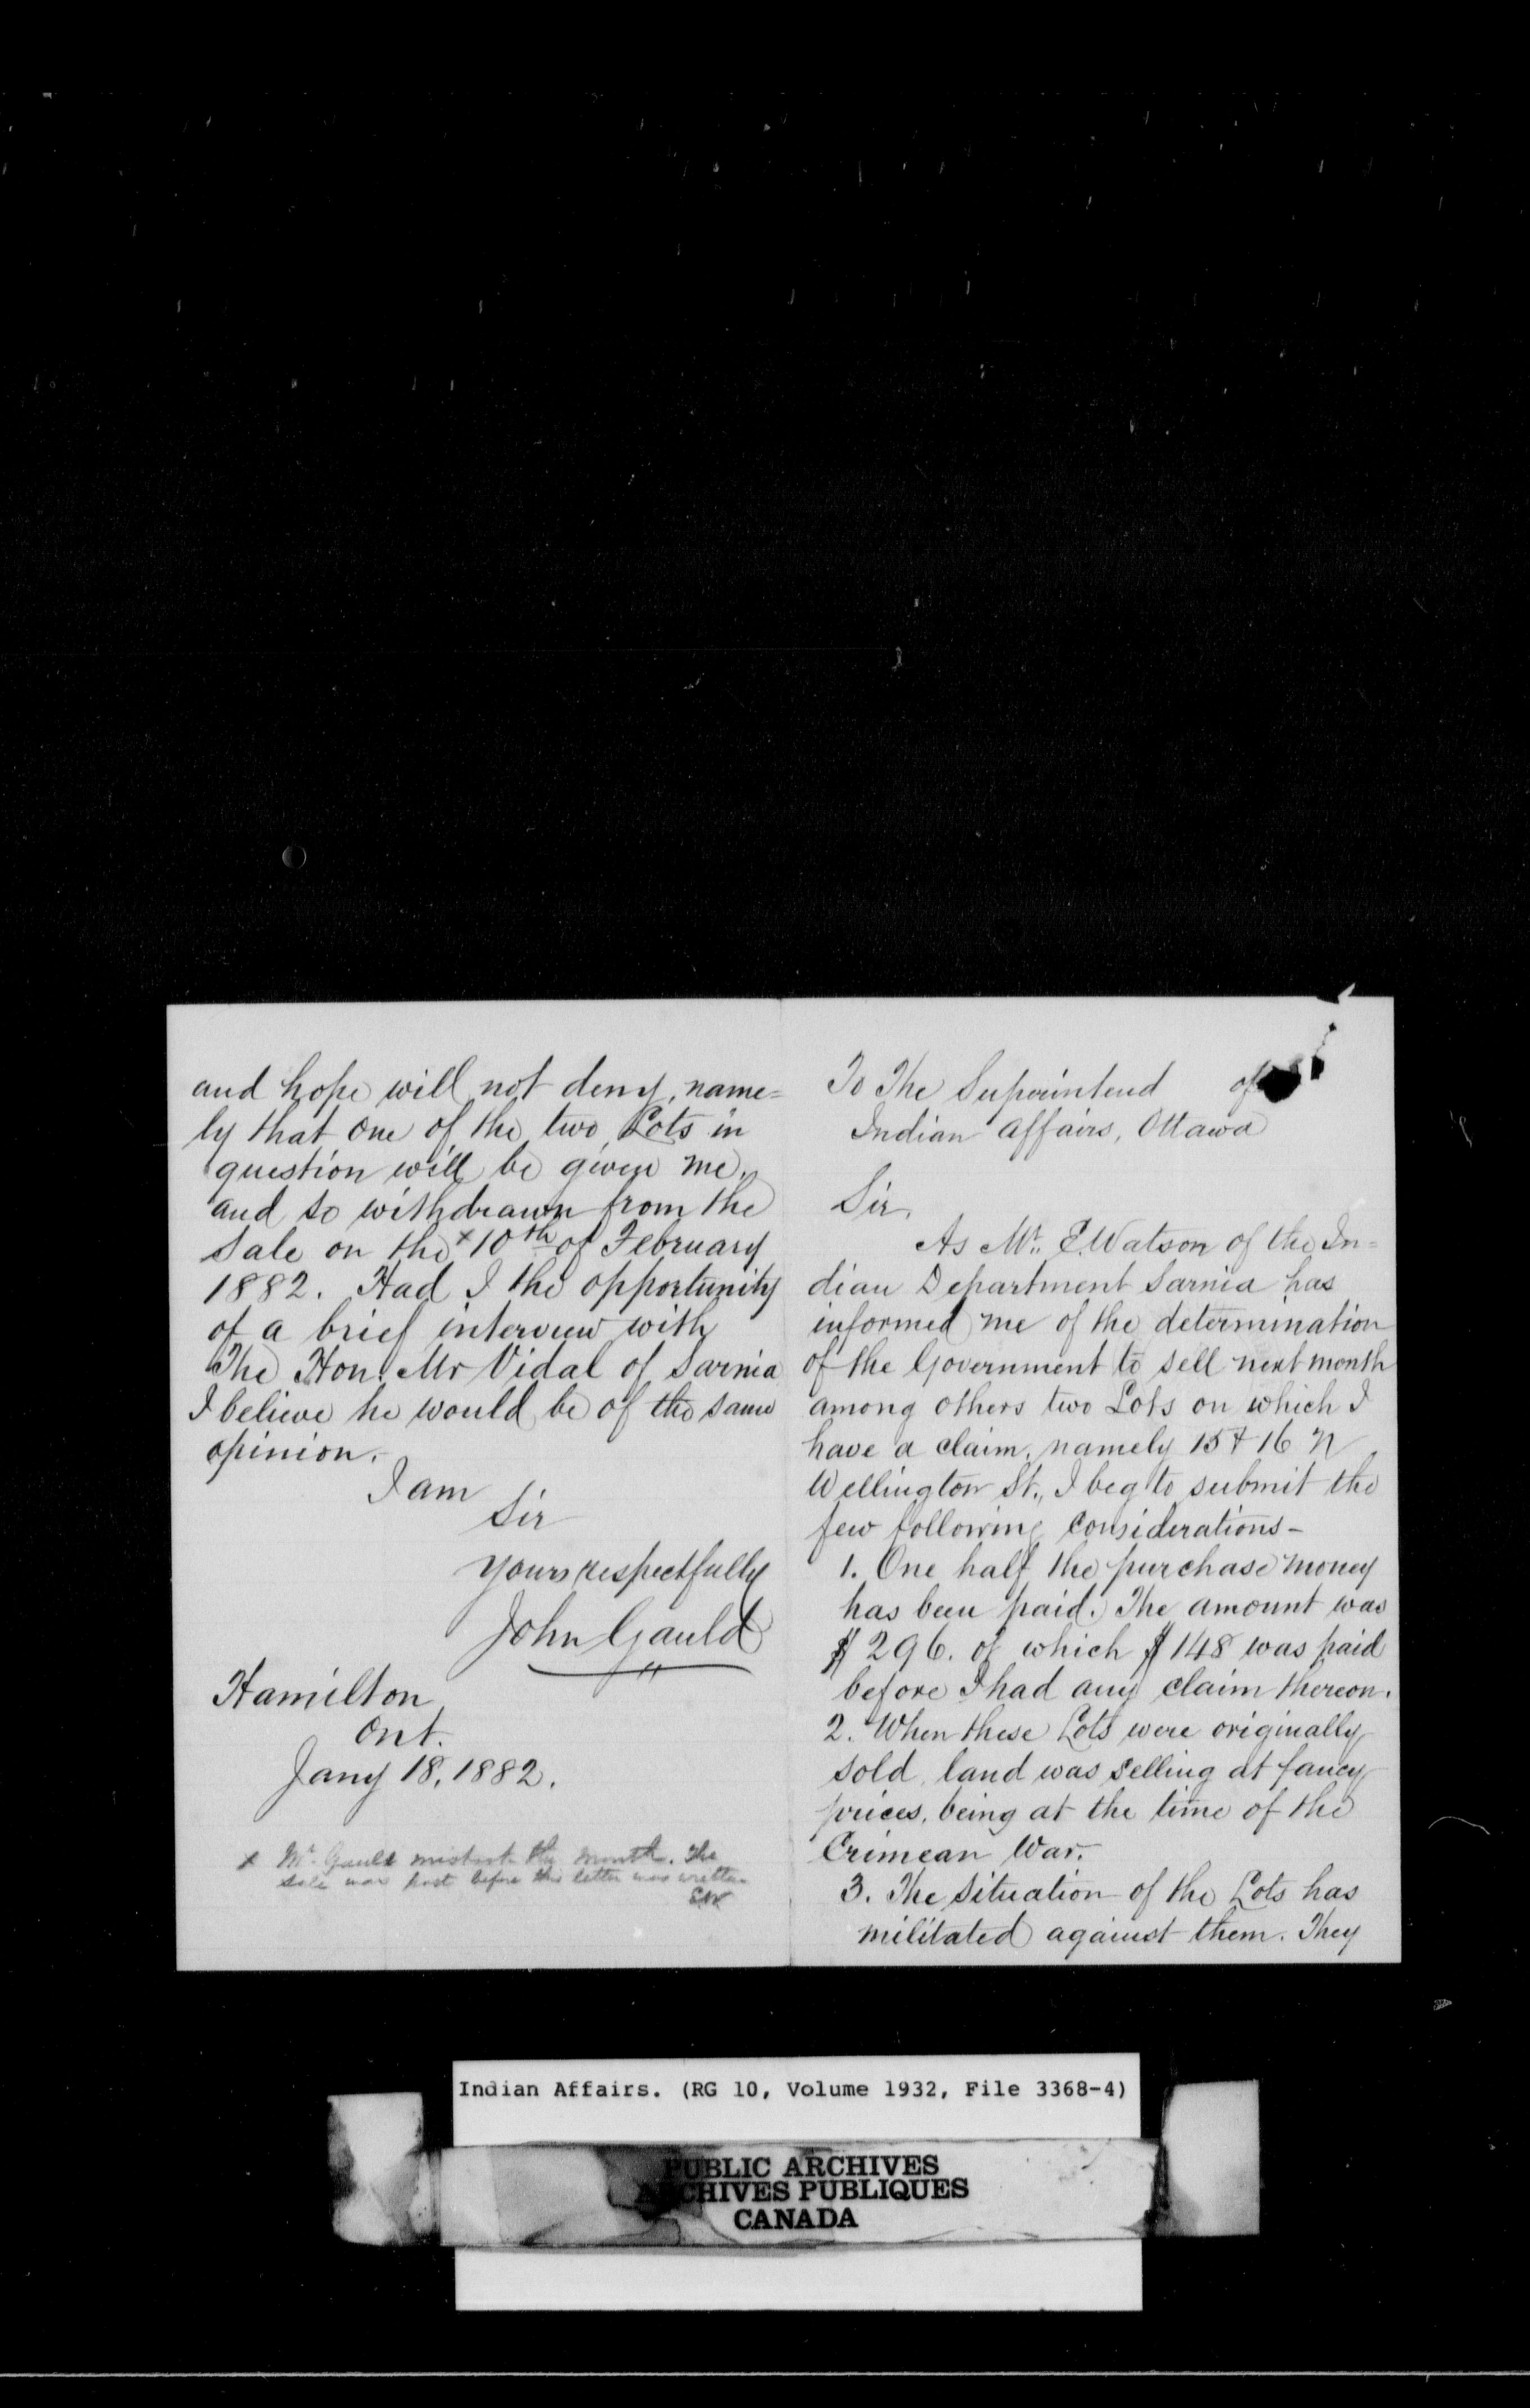 and hope will not deny, name=
ly that one of the two Lots in
question will be given me,
and so withdrawn from the
sale on the x 10th of February
1882. Had I the opportunity
of a brief interview with
The Hon. Mr Vidal of Sarnia
I believe he would be of the same
opinion.
I am
Sir
Yours respectfully
John Gauld
Hamilton
Ont.
Jany 18, 1882.
x Mr. Gauld mistook the month. The
sale was past before this letter was written
EW
To The Superintend of
Indian Affairs, Ottawa
Sir,
As Mr. E. Watson of the In=
dian Department Sarnia has
informed me of the determination
of the Government to sell next month
among others two Lots on which I
have a claim, namely 15 & 16 N
Wellington St., I beg to submit the
few following considerations -
1. One half the purchase money
has been paid. The amount was
$296. of which $148 was paid
before I had any claim thereon.
2. When these Lots were originally
sold, land was selling at fancy
prices, being at the time of the
Crimean War.
3. The situation of the Lots has
militated against them. They
Indian Affairs. (RG 10, Volume 1932, File 3368-4)
PUBLIC ARCHIVES
ARCHIVES PUBLIQUES
CANADA